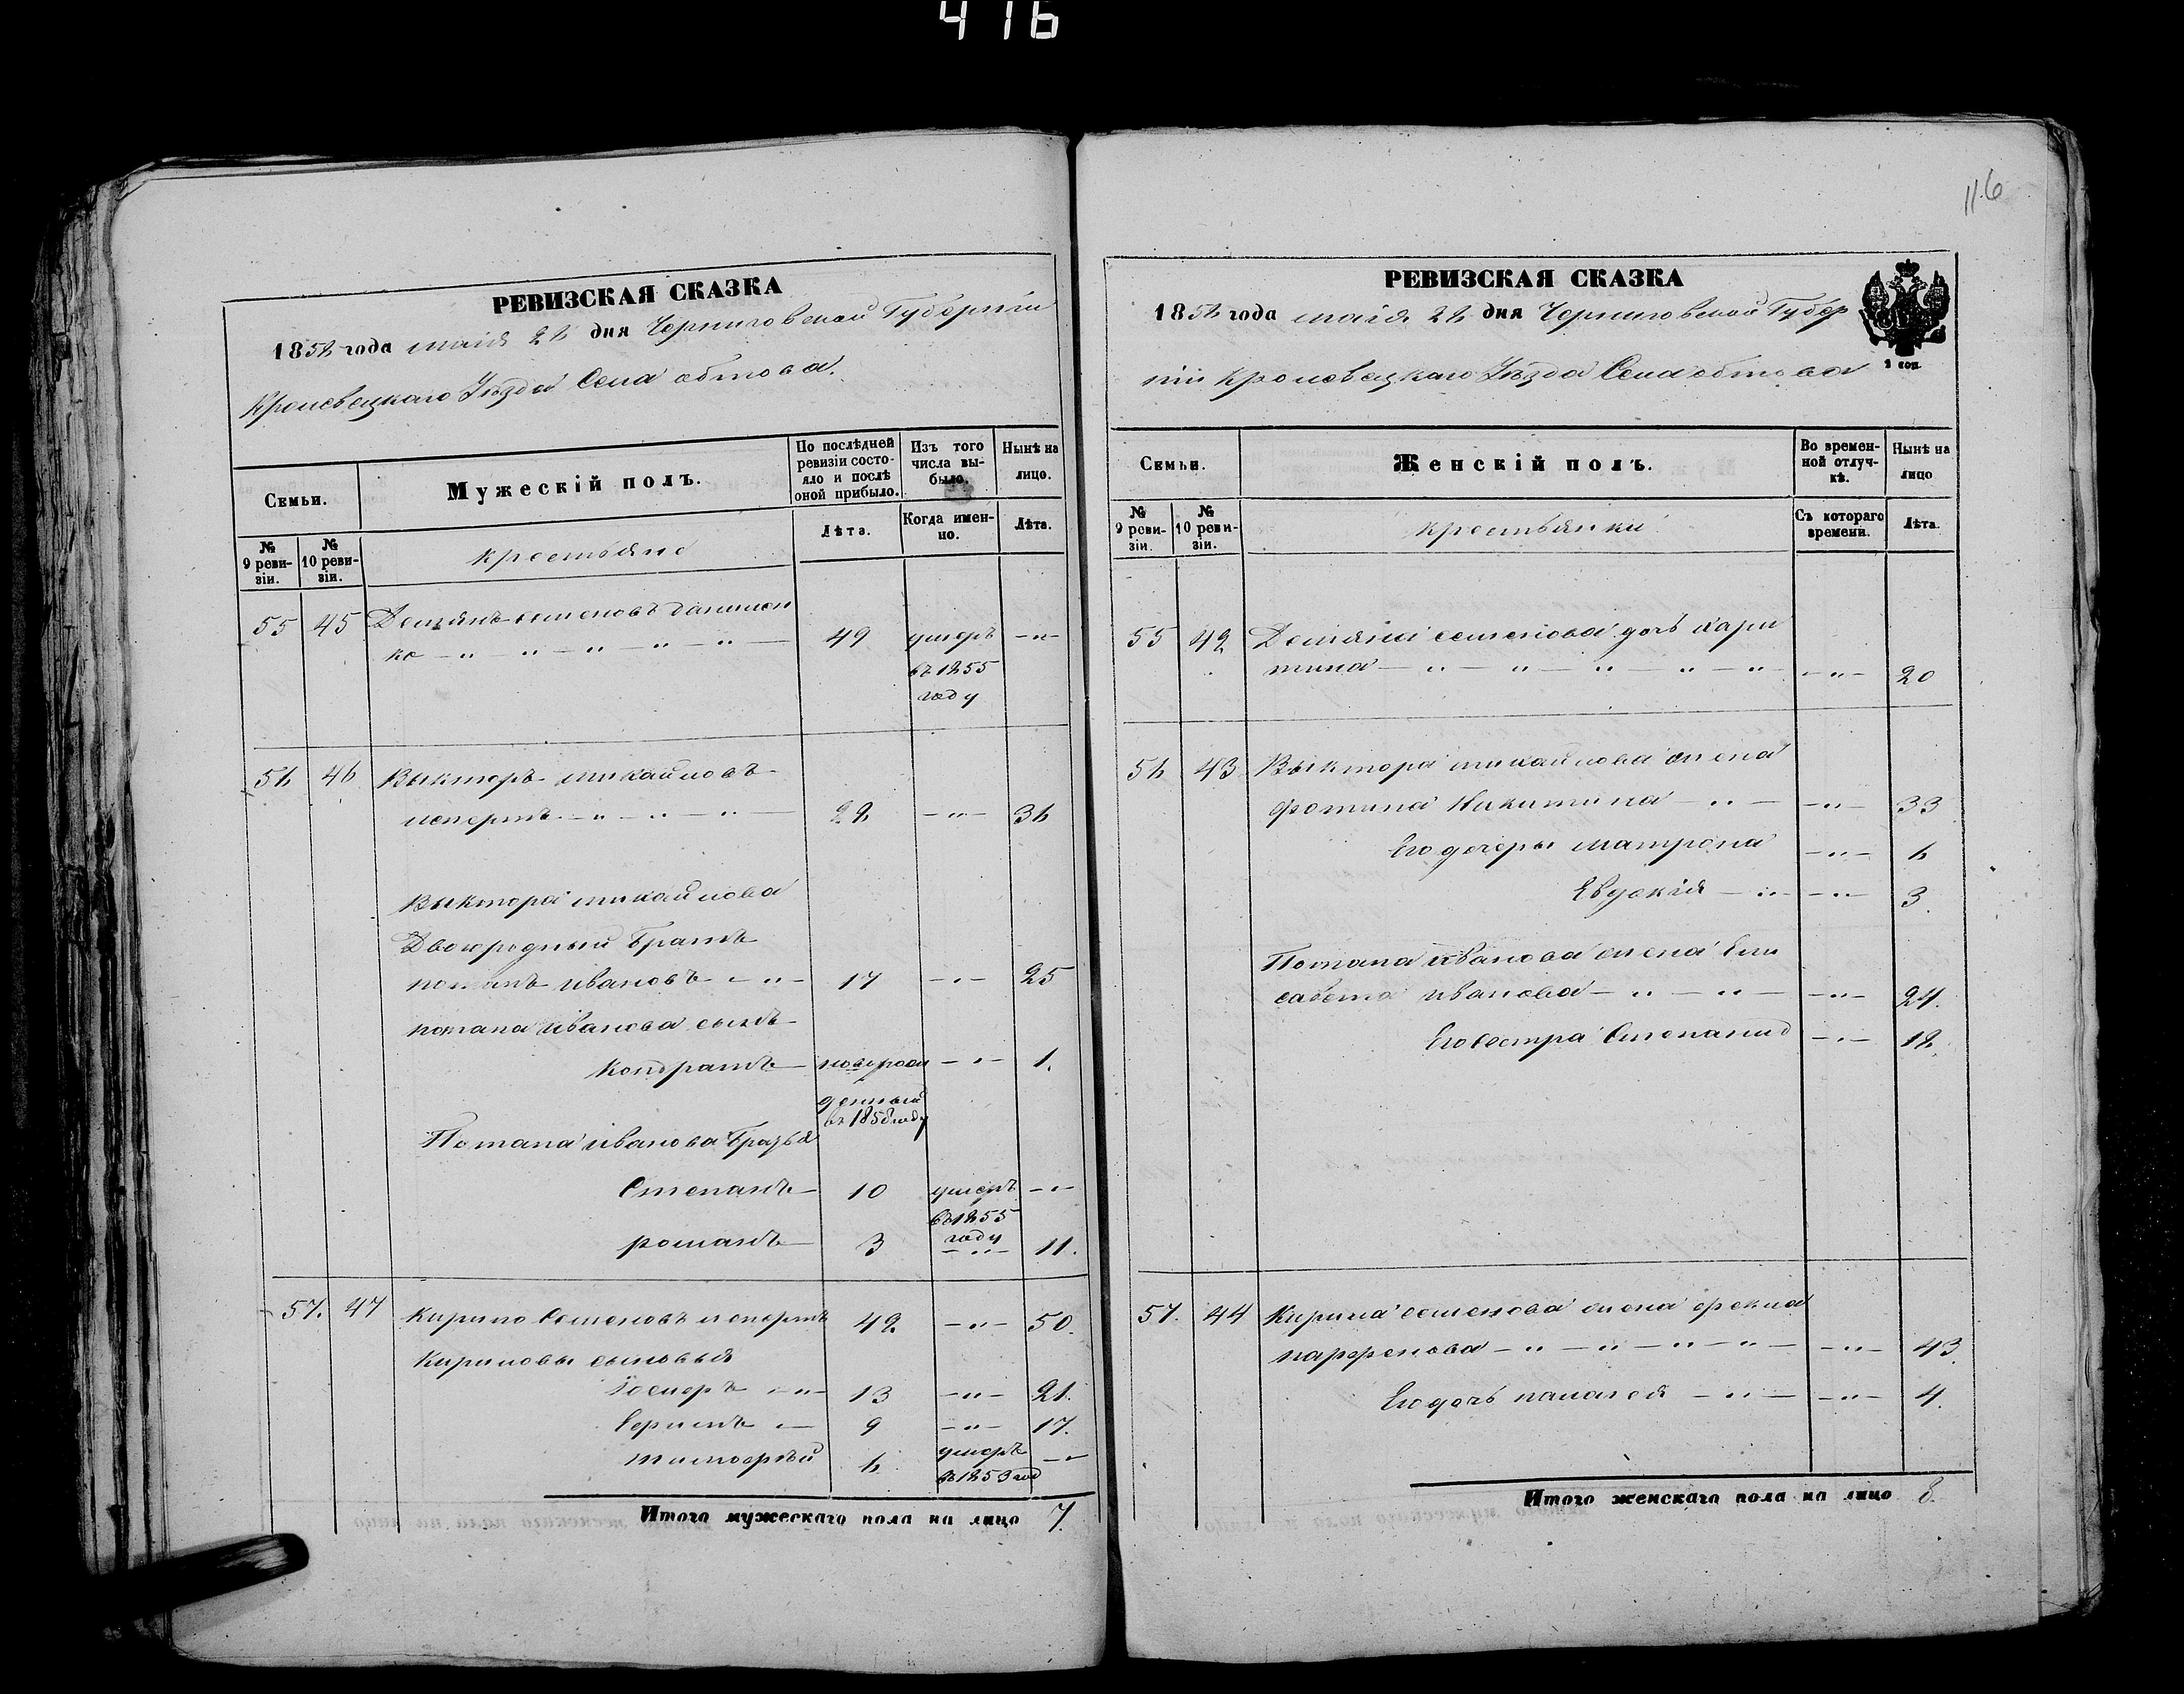 416
116
РЕВИЗСКАЯ СКАЗКА
1858 года маія 28 дня Черниговской Губерніи
Кролевецкаго Уѣзда Села обтова.
Семьи.
Мужескій полъ.
По послѣдней ревизіи состояло и послѣ оной прибыло.
Изъ того числа выбыло.
Нынѣ на лицо.
№ 9 ревизіи.
№ 10 ревизіи.
крестьяне
Лѣта.
Когда именно.
Лѣта.
55 45 Демянъ семеновъ данилен
ко — „ — „ — „ — „ — „ — 49 умеръ — „ —
въ 1855
году
56 46 Выкторъ михайловъ
леперть — „ — „ — „ — 28 — „ — 36
Выктора михайлова
Двоюродный братъ
потапъ ивановъ — „ — 17 — „ — 25
потапа иванова сынъ
Кондратъ — новорож — „ — 1.
денный
въ 1858 году
Потапа иванова братья
Степанъ — 10 умеръ — „ —
въ 1855
году
романъ — 3 — „ — 11.
57. 47 Кирило Семеновъ леперть 42 — „ — 50.
Кириловы сыновья
— „ — 13 — „ — 21.
— 9 — „ — 17.
тимофѣй 6 умеръ — „ —
въ 1853 год
Итого мужескаго пола на лицо 7.
РЕВИЗСКАЯ СКАЗКА
1858 года маія 28 дня Черниговской Губер
ніи Кролевецкаго Уѣзда Села обтова
2 коп.
Семьи.
Женскій полъ.
Во временной отлучкѣ.
Нынѣ на лицо
№ 9 ревизіи.
№ 10 ревизіи.
крестьянки
Съ котораго времени.
Лѣта.
55 42 Демяна семенова дочь хари
тина — „ — „ — „ — „ — „ — — „ — 20
56 43 Выктора михайлова жена
фотина Никитина — „ — — „ — 33
Его дочеры матрона — „ — 6
Евдокія — „ — — „ — 3.
Потапа иванова жена Ели
савета иванова — „ — „ — — „ — 24.
Его сестра Степанид — „ — 18
57. 44 Кирила семенова жена фекла
парфенова — „ — „ — „ — „ — — „ — 43.
Его дочь палагея — „ — — „ — 4.
Итого женскаго пола на лицо 8.